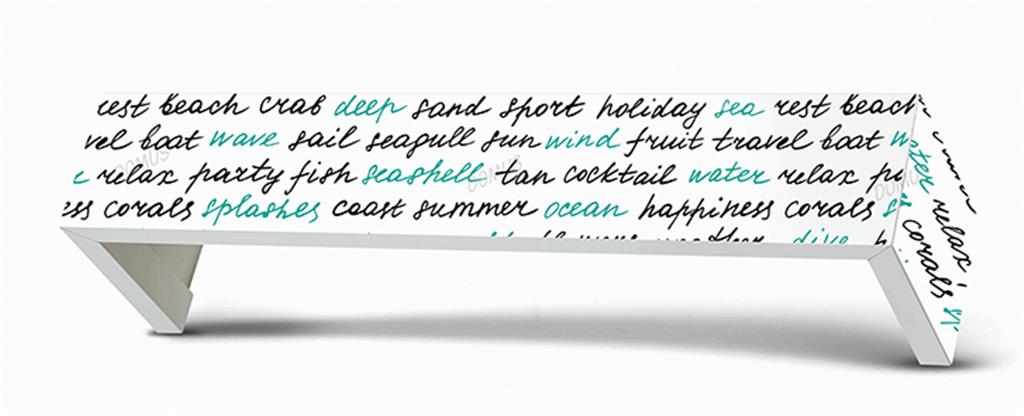 rest beach crab deep sand sport holiday sea rest beach
vel boat wave sail seagull sun wind fruit travel boat water
c relax party fish seashell tan cocktail water relax pa relax
ess corals splashes coast summer ocean happiness corals s corals sp
dive
DOMUS
DOMUS
DOMUS